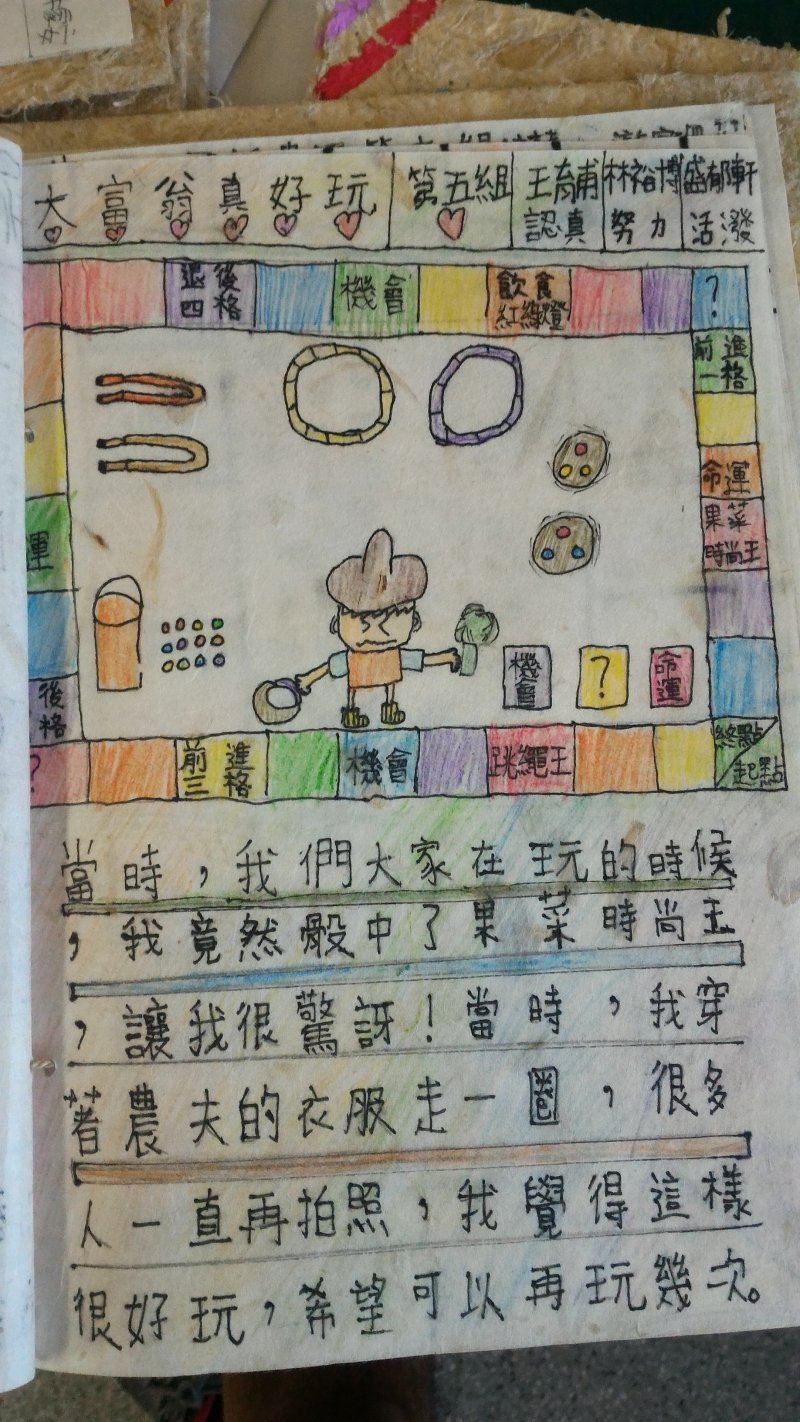 大富翁真好玩 第五組 王育誧 林裕博 盛郁軒
認真 努力 活潑
退後四格 機會 飲食紅綠燈 ?
前進一格
命運
果菜時尚王
運
後格
機會 ? 命運
? 前進三格 機會 跳繩王 終點 起點
當時，我們大家在玩的時候
，我竟然骰中了果菜時尚王
，讓我很驚訝！當時，我穿
著農夫的衣服走一圈，很多
人一直再拍照，我覺得這樣
很好玩，希望可以再玩幾次。